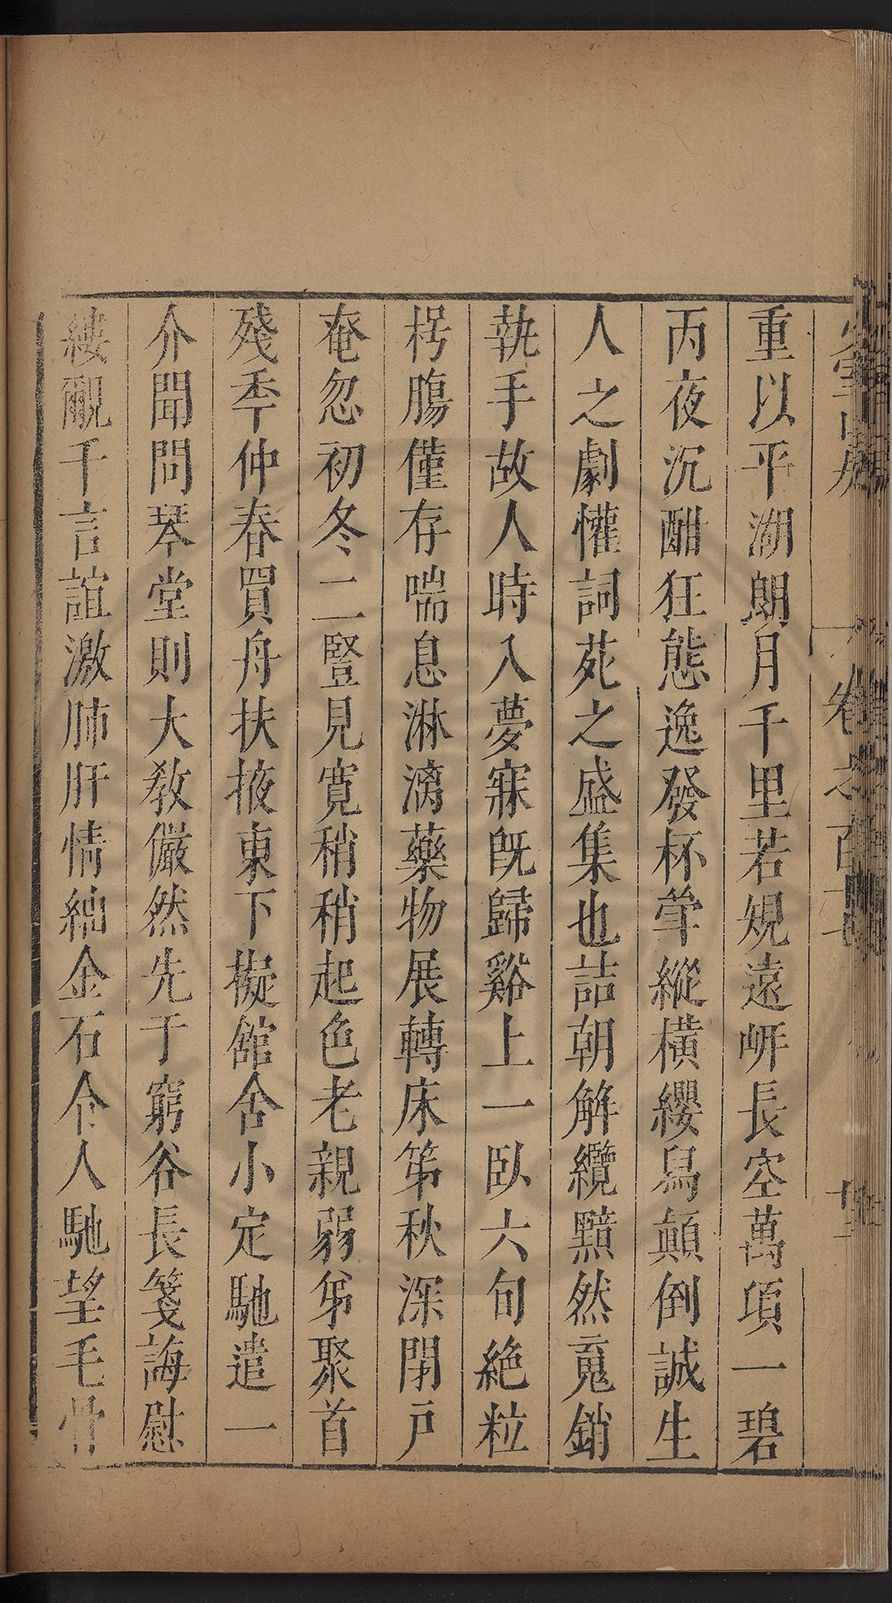 重以平湖朗月千里若規遠岍長空萬項一碧
丙夜沉酣狂態逸發杯斝縱橫纓舄顛倒誠生
人之劇懽詞苑之盛集也詰朝解纜黯然䰟銷
執手故人時入夢寐旣歸谿上一臥六旬絶粒
枵膓僅存喘息淋漓藥物展轉床笫秋深閉戶
奄忽初冬二豎見寬稍稍起色老親弱弟聚首
殘季仲春買舟扶掖東下擬舘舍小定馳遣一
介聞問琴堂則大教儼然先于窮谷長箋誨慰
縷覼千言誼激肺肝情紬金石令人馳望毛骨
卷之百